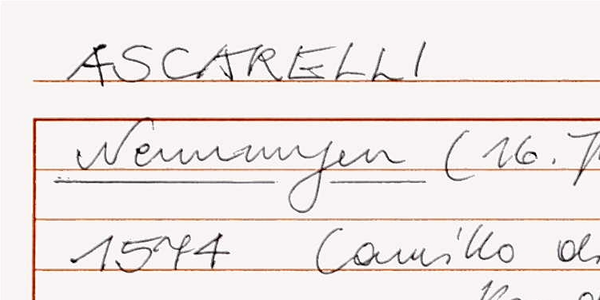 ASCARELLI
Nennungen (16.
1544 Camillo